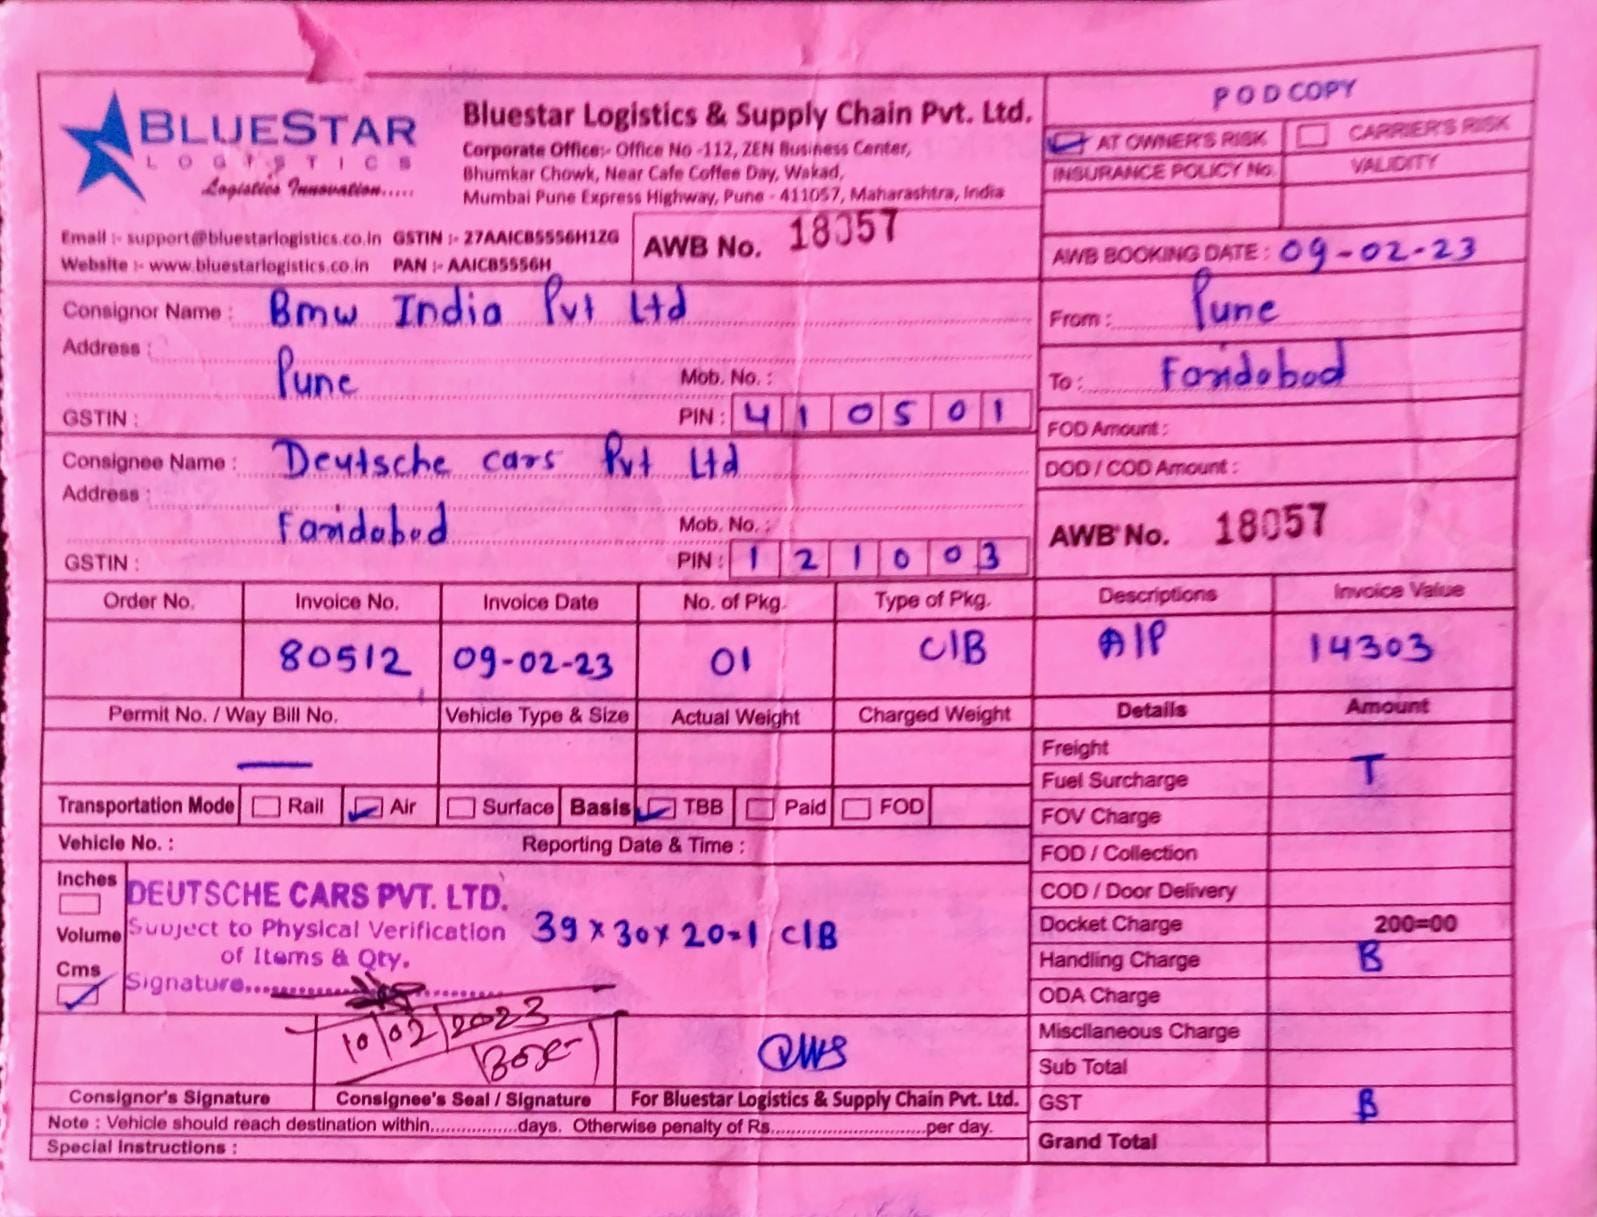 POD COPY
BLUESTAR
LOGISTICS
Logistics Innovation.....
Bluestar Logistics & Supply Chain Pvt. Ltd.
Corporate Office:- Office No -112, ZEN Business Center,
Bhumkar Chowk, Near Cafe Coffee Day, Wakad,
Mumbai Pune Express Highway, Pune - 411057, Maharashtra, India
AT OWNER'S RISK CARRIER'S RISK
INSURANCE POLICY No. VALIDITY
Email :- support@bluestarlogistics.co.in GSTIN :- 27AAICB5556H1ZG
Website :- www.bluestarlogistics.co.in PAN :- AAICB5556H
AWB No. 18057
AWB BOOKING DATE : 09-02-23
Consignor Name : Bmw India Pvt Ltd
Address :
Pune
Mob. No. :
GSTIN :
PIN : 410501
From : Pune
To : Faridabad
FOD Amount :
DOD / COD Amount :
Consignee Name : Deutsche cars Pvt Ltd
Address :
Faridabad
Mob. No. :
GSTIN :
PIN : 121003
AWB No. 18057
Order No. Invoice No. Invoice Date No. of Pkg. Type of Pkg. Descriptions Invoice Value
80512 09-02-23 01 C/B A/P 14303
Permit No. / Way Bill No. Vehicle Type & Size Actual Weight Charged Weight Details Amount
—
Transportation Mode Rail Air Surface Basis TBB Paid FOD
Vehicle No. : Reporting Date & Time :
Inches
Volume
Cms
DEUTSCHE CARS PVT. LTD.
Subject to Physical Verification
of Items & Qty.
Signature....................
39 x 30 x 20=1 C/B
10/02/2023
Consignor's Signature Consignee's Seal / Signature For Bluestar Logistics & Supply Chain Pvt. Ltd.
Note : Vehicle should reach destination within.................days. Otherwise penalty of Rs..............................per day.
Special Instructions :
Freight
T
Fuel Surcharge
FOV Charge
FOD / Collection
COD / Door Delivery
Docket Charge 200=00
Handling Charge B
ODA Charge
Miscllaneous Charge
Sub Total
GST B
Grand Total